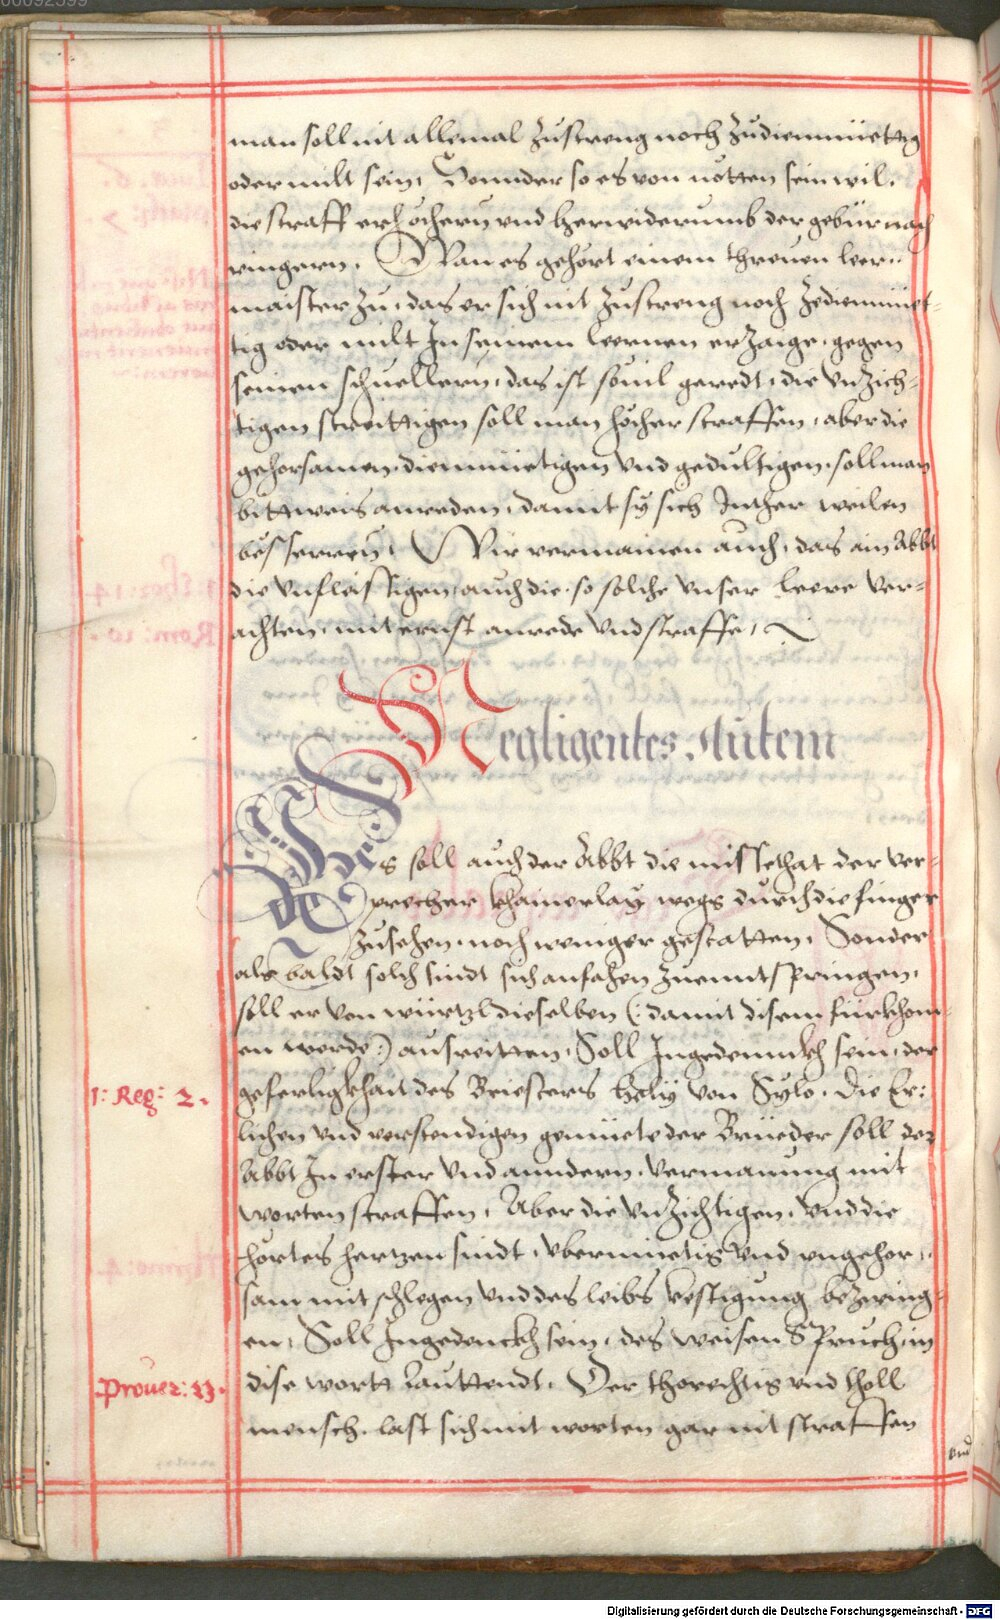 man soll nit allemal Zustreng noch Zudiemmüettig
oder milt sein, Sonnder so es von nötten sein wil,
die straff erhöchern vnd herwiderumb der gebür nach
ringern. Wan es gehört einem threuen leer=
maister zu, das er sich nit Zustreng noch Zediemmüet=
tig oder milt In seinem leernen erZaige, gegen
seinen schuellern, das ist souil geredt, die vnZich=
tigen streittigen soll man höcher straffen, aber die
gehorsamen, diemmüetigen vnd gedultigen, soll man
bittweis anreden, damit sÿ sich Inther weilen
bessern. Wir vermainen auch, das ain Abbt
die vnfleissigen, auch die, so solche vnser leere ver=
achten, mit ernst anrede vnd straffe,
Negligentes Autem
Es soll auch der Abbt die missethat der ver=
precher khainerlaÿ wegs durch die finger
Zusehen, noch weniger gestatten, Sonder
als baldt solch sindt sich anfahen Zuenntspringen,
soll er von würtzl dieselben (: damit disem fürkhom=
en werde :) ausreitten, Soll Ingedennckh sein, der
1: Reg: 2.
geferligkhait des Briesters Helÿ von Sÿlo. Die Er:
lichen vnd verstendigen gemüete der Brüeder soll der
Abbt In erster vnd anndern vermanung mit
worten straffen, Aber die vnZichtigen, vnd die
hörtes hertzen sindt, vbermüetig vnd vngehor=
sam mit schlegen vnd des leibs kestigung beZwing=
en, Soll Ingedenckh sein, des weisen Spruch, in
Prouer: 23.
dise wortt lauttendt. Der thorechtig vnd tholl
mensch, last sich mit worten gar nit straffen
vnd
Digitalisierung gefördert durch die Deutsche Forschungsgemeinschaft - DFG